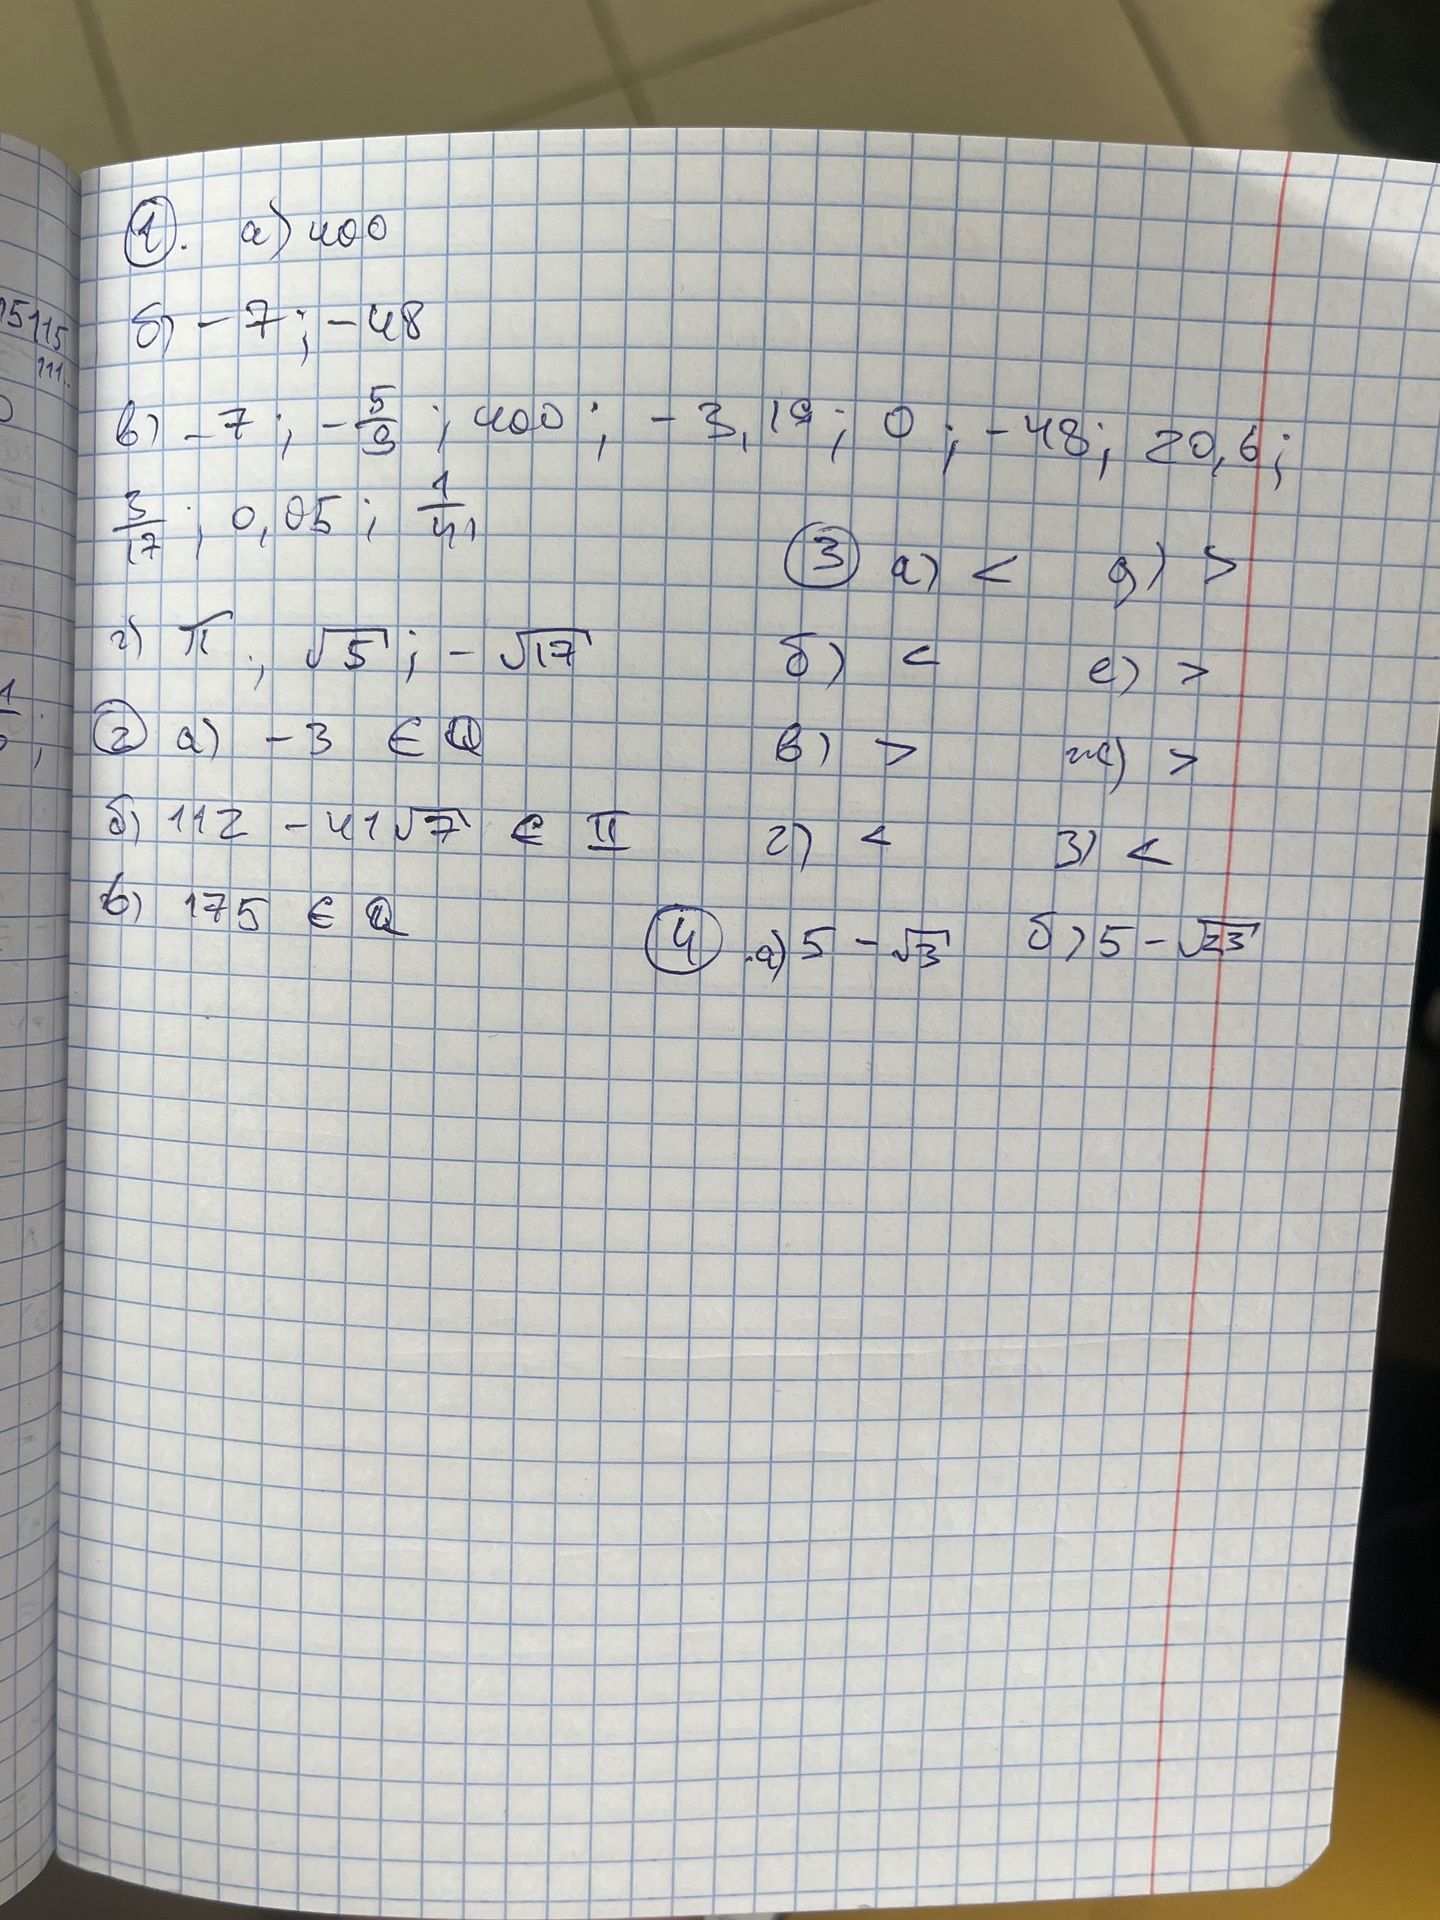 1. а) 400
б) -7; -48
в) -7; -5/9; 400; -3,19; 0; -48; 20,6;
3/17; 0,05; 1/41
г) π; √5; -√17
2 а) -3 ∈ Q
б) 112 - 41√7 ∈ II
в) 175 ∈ Q
3 а) < д) >
б) < е) >
в) > ж) >
г) < з) <
4 а) 5 - √3 б) 5 - √23
15115
111.